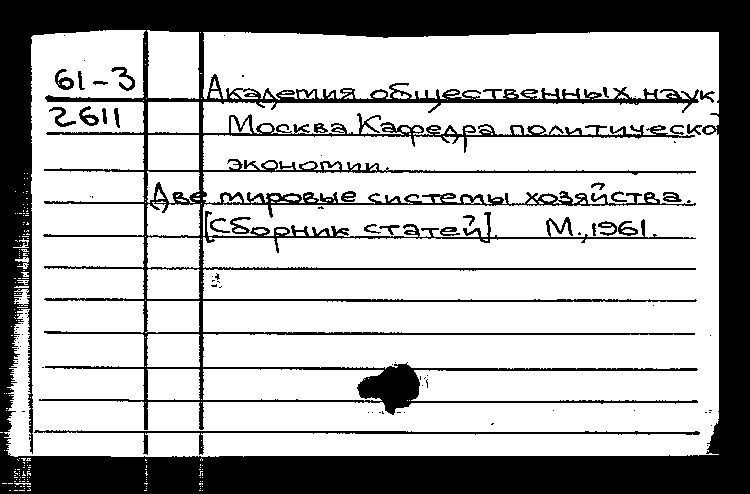 61-3
Академия общественных наук.
2611
Москва. Кафедра политической
экономии.
Две мировые системы хозяйства.
[Сборник статей]. М., 1961.